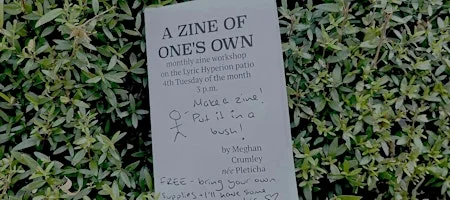 A ZINE OF
ONE'S OWN
monthly zine workshop
on the Lyric Hyperion patio
4th Tuesday of the month
3 p.m.
Make a zine!
Put it in a
bush!
by Meghan
Crumley
née Pleticha
FREE - bring your own
supplies + I'll have some